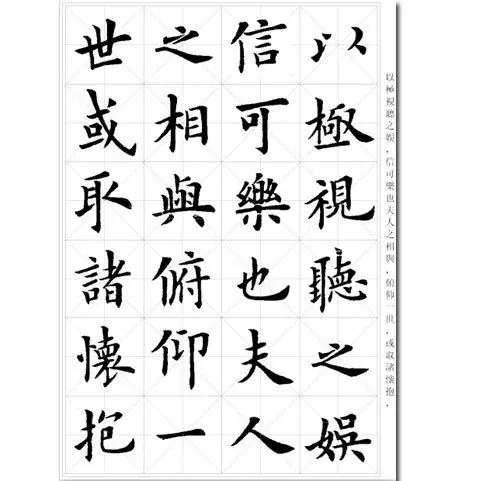 以極視聽之娛
信可樂也夫人
之相與俯仰一
世或取諸懷抱
以極視聽之娛，信可樂也夫人之相與，俯仰一世，或取諸懷抱。